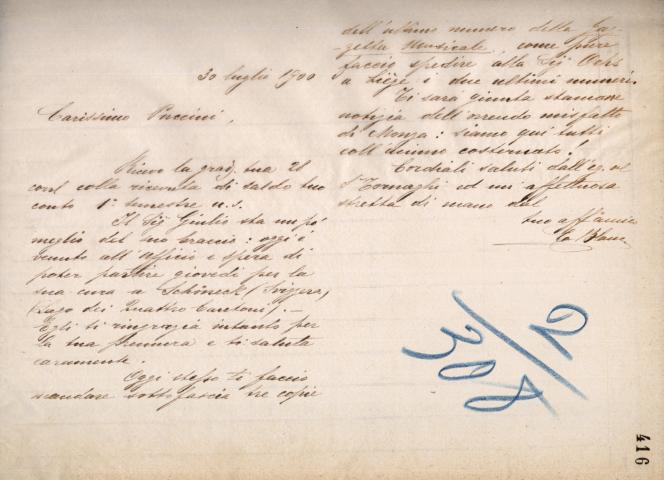 30 luglio 1900
Carissimo Puccini,
Ricevo la graz. tua 28
corr colla ricevuta di saldo tuo
conto 1° semestre u.s.
Il Sig Giulio sta un pó
meglio del suo braccio: oggi è
venuto all'ufficio e spera di
poter partire giovedì per la
sua cura a Schöneck (Svizzera)
(Lago dei Quattro Cantoni). —
Egli ti ringrazia intanto per
la tua premura e ti saluta
caramente.
Oggi stesso ti faccio
mandare sotto fascia tre copie
dell'ultimo numero della Ga-
-zetta Musicale, come pure
faccio spedire alla Sig
a Liège i due ultimi numeri.
Ti sarà giunta stamane
notizia dell'orrendo misfatto
di Monza: siamo qui tutti
coll'animo costernato!
Cordiali saluti dall'eg.
Tornaghi ed un'affettuosa
stretta di mano dal
tuo aff amico
C Blanc
2/308
416